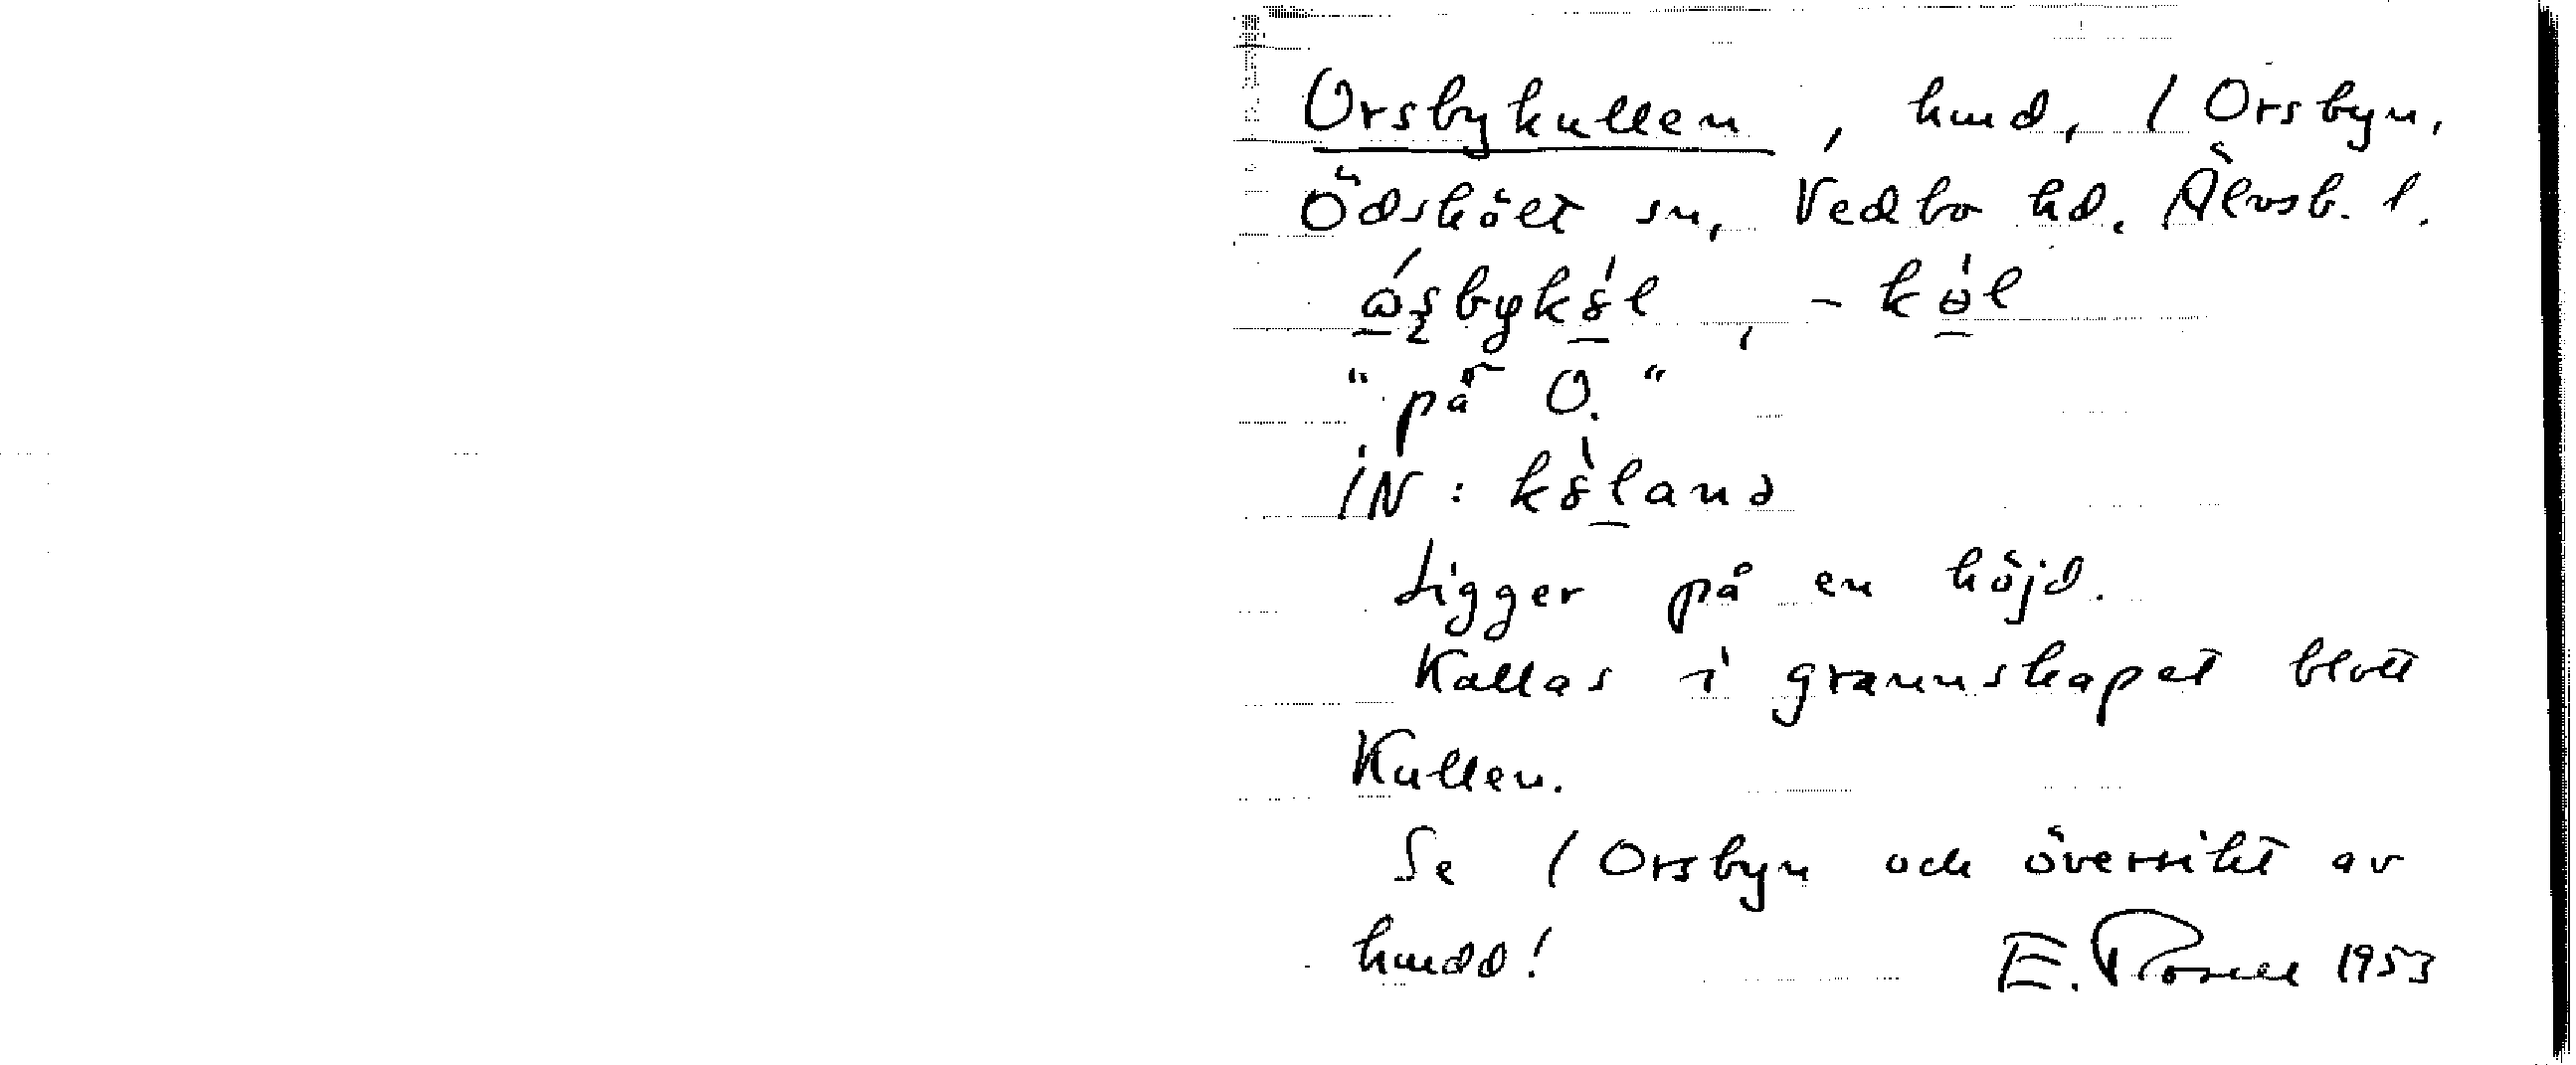 Orsbykullen, hmd, / Orsbyn,
Ödskölt sn, Vedbo hd. Älvsb. l.
"på O."
IN:
Ligger på en höjd.
Kallas i grannskapet blott
Kullen.
Se / Orsbyn och översikt av
hmdd!
E. Rosell 1953